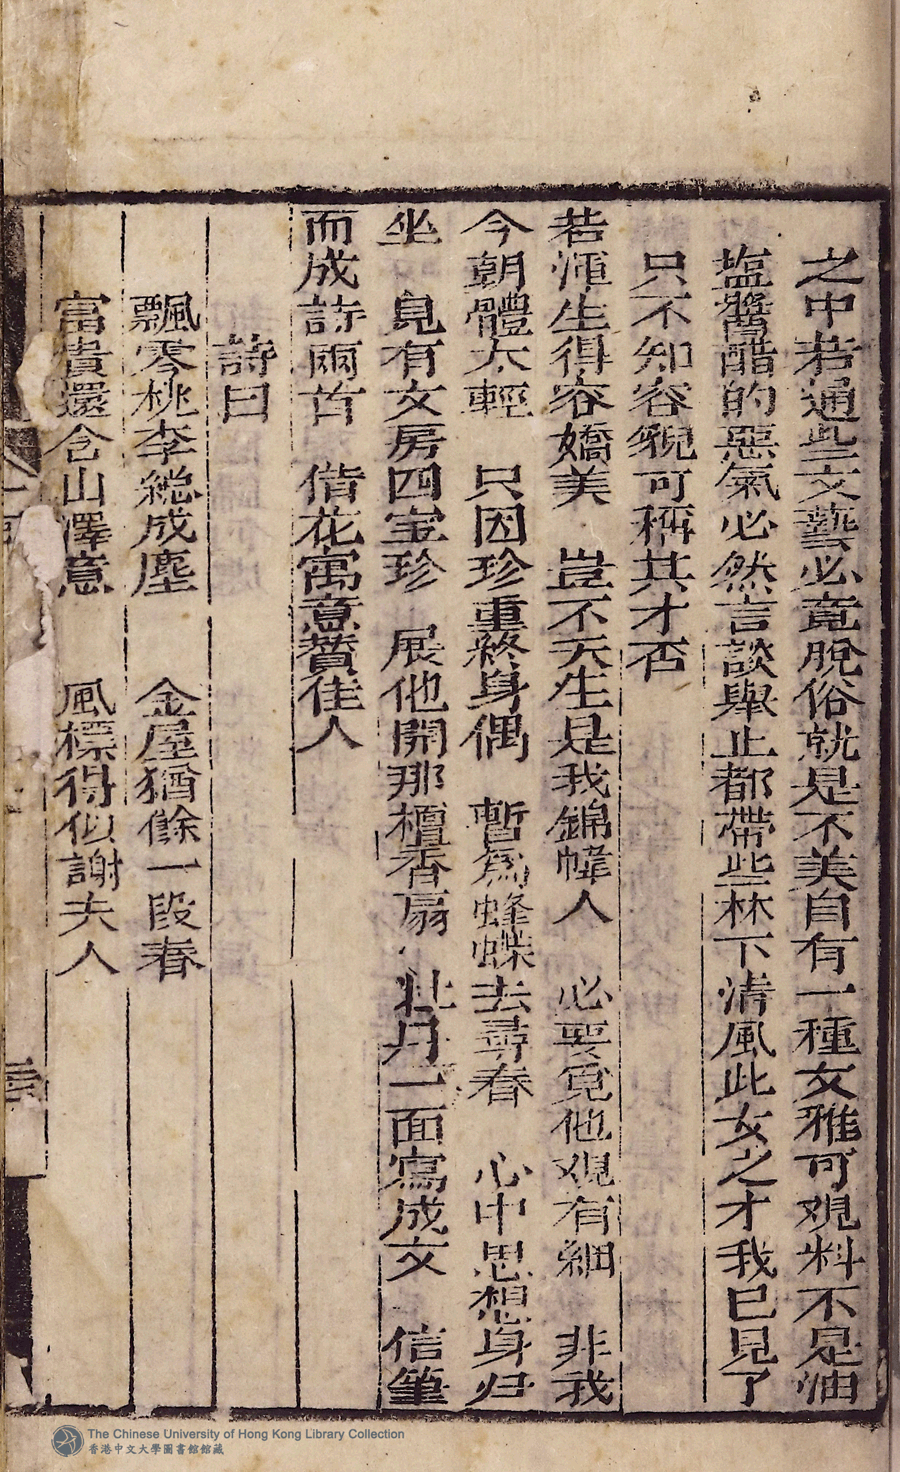 之中若通些文藝必竟脫俗就是不美自有一種文雅可观料不是油
塩醬醋的惡氣必然言談舉止都帶些林下清風此女之才我已見了
只不知容貌可稱其才否
若渾生得容嬌美　豈不天生是我錦幃人　必要覓他观有細　非我
今朝體太輕　只因珍重終身偶　暫為蜂蝶去尋春　心中思想身归
坐　見有文房四宝珍　展他開那檀香扇　牡丹一面寫成文　信筆
而成詩兩首　借花寓意贊佳人
詩曰
飄零桃李総成塵　金屋猶餘一段春
富貴還含山澤意　風標得似謝夫人
The Chinese University of Hong Kong Library Collection
香港中文大學圖書館館藏